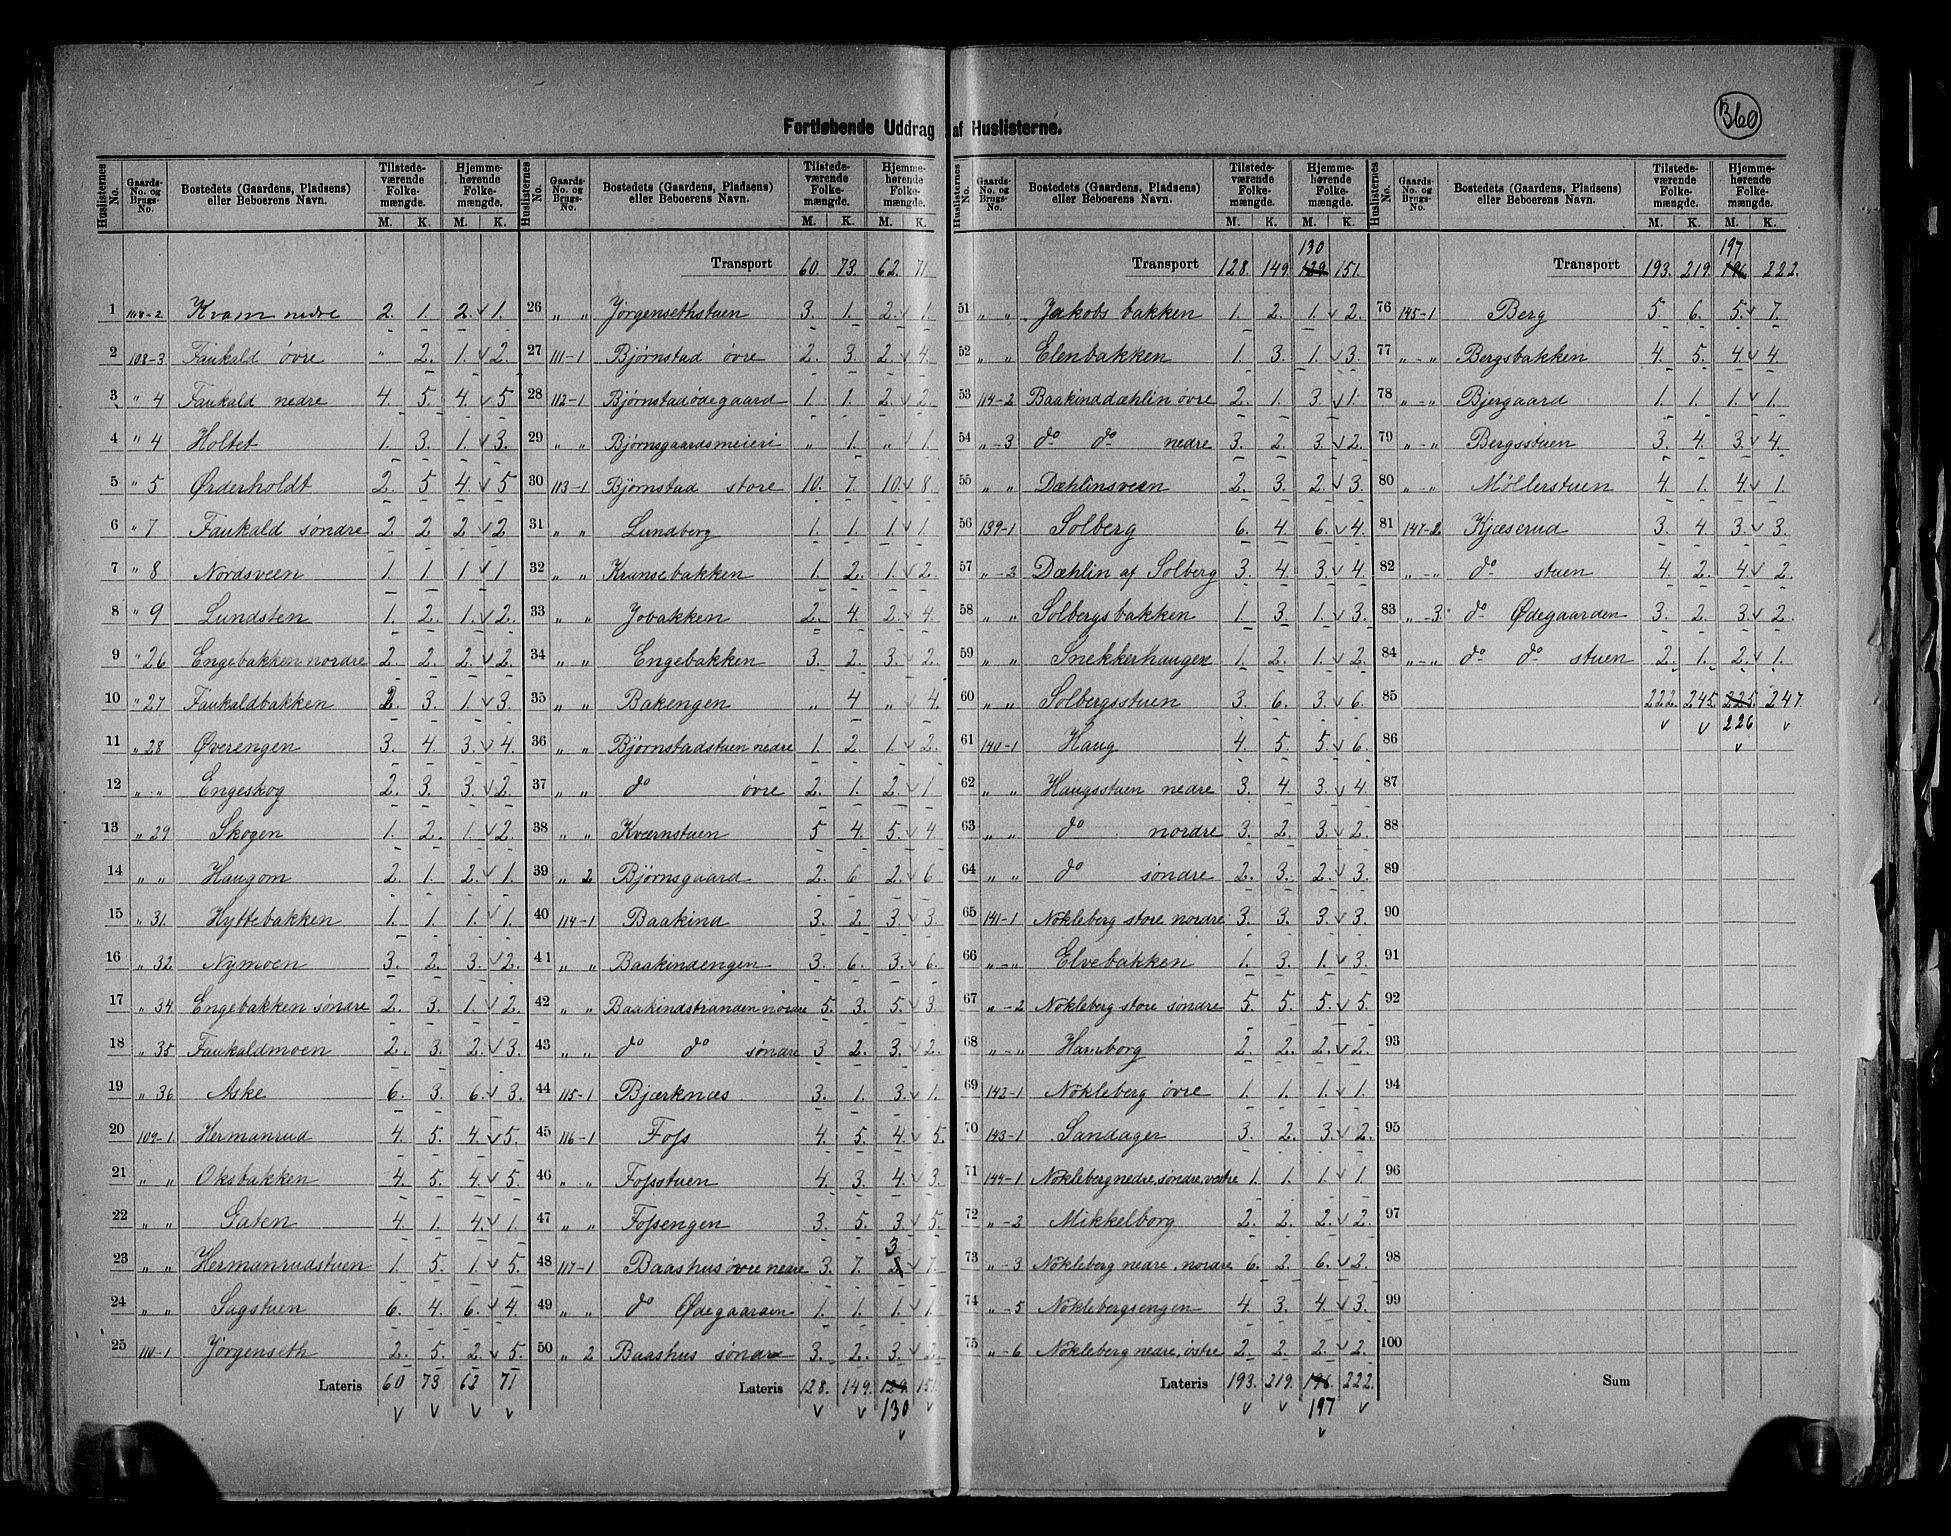 360
Fortløbende Uddrag af Huslisterne.
Huslisternes No. | Gaards-No. og Brugs-No. | Bostedets (Gaardens, Pladsens) eller Beboerens Navn. | Tilstedeværende Folkemængde. M. K. | Hjemmehørende Folkemængde. M. K.
1 108-2 Kvam nedre 2. 1. 2. 1.
2 108-3 Faukald øvre " 2. 1. 2.
3 " 4 Faukald nedre 4. 5. 4. 5
4 " 4 Holtet 1. 3. 1. 3.
5 " 5 Ørderholdt 2. 5 4. 5
6 " 7 Faukald søndre 2. 2 2 2
7 " 8 Nordsveen 1. 1 1 1
8 " 9 Lundsten 1. 2. 1. 2.
9 " 26 Engebakken nordre 2. 2. 2. 2.
10 " 27 Faukaldbakken 2. 3. 1. 3.
11 " 28 Øverengen 3. 4. 3. 4.
12 " " Engeskog 2. 3. 3. 2.
13 " 29 Skogen 1. 2. 1. 2.
14 " " Haugom 2. 1. 2. 1.
15 " 31. Hyttebakken 1. 1. 1. 1.
16 " 32 Nymoen 3. 2. 3. 2.
17 " 34 Engebakken søndre 2. 3. 1. 2.
18 " 35 Faukaldmoen 2. 3. 2. 3.
19 " 36 Aske 6. 3. 6. 3.
20 109-1. Hermanrud 4. 5. 4. 5.
21 " " Oksbakken 4. 5. 4. 5.
22 " " Gaten 4. 1. 4. 1.
23 " " Hermanrudstuen 1. 5. 1. 5.
24 " " Sagstuen 6. 4. 6. 4.
25 110-1 Jørgenseth 2. 5. 2. 5.
Lateris 60 73 62 71
Transport 60. 73. 62. 71.
26 " " Jørgensethstuen 3. 1. 2. 1.
27 111-1 Bjørnstad øvre 2. 3. 2. 4.
28 112-1 Bjørnstadødegaard 1. 1. 2. 2.
29 " " Bjørnsgaardsmeieri " 1. " 1.
30 113-1 Bjørnstad store 10. 7. 10. 8
31 " " Lundberg 1. 1. 1. 1.
32 " " Kransebakken 1. 2. 1. 2.
33 " " Jobakken 2. 4. 2. 4.
34 " " Engebakken 3. 2. 3. 2.
35 " " Bakengen " 4 " 4.
36 " " Bjørnstadstuen nedre 1. 2. 1. 2.
37 " " do øvre 2. 1. 2. 1
38 " " Kværnstuen 5 4. 5. 4.
39 " 2 Bjørnsgaard 2. 6 2. 6
40 114-1 Baakind 3. 2. 3. 3.
41 " " Baakindengen 3. 6. 3. 6.
42 " " Baakindstranden nordre 5. 3. 5. 3
43 " " do do søndre 3 2. 3. 2.
44 115-1 Bjærknæs 3. 1. 3. 1.
45 116-1 Foss 4. 5. 4. 5.
46 " " Fossstuen 4. 3. 4. 3
47 " " Fossengen 3. 5. 3. 5.
48 117-1 Baashus øvre nedre 3. 7. 3 7
49 " " do Ødegaarden 1. 1. 1. 1.
50 " 2 Baashus søndre 3. 2. 3. 2.
Lateris 128. 149. 129. 151.
130
Transport 128. 149. 130 129. 151.
51 " " Jakobs bakken 1. 2. 1. 2.
52 " " Elenbakken 1. 3. 1. 3.
53 114-2 Baakinddæhlin øvre 2. 1. 3 1.
54 " -3 do do nedre 3. 2. 3. 2.
55 " " Dæhlinsveen 2. 3. 2. 3.
56 139-1 Solberg 6. 4. 6. 4.
57 " -2 Dæhlin af Solberg 3. 4. 3. 4.
58 " " Solbergsbakken 1. 3. 1. 3.
59 " " Snekkerhaugen 1. 2. 1. 2.
60 " " Solbergsstuen 3. 6. 3. 6.
61 140-1 Haug 4. 5. 5. 6.
62 " " Haugsstuen nedre 3. 4. 3. 4.
63 " " do nordre 3. 2. 3. 2.
64 " " do søndre 2. 3. 2. 3.
65 141-1 Nökleberg store nordre 3. 3. 3. 3.
66 "-" Elvebakken 1. 3. 1. 3.
67 " -2 Nökleberg store søndre 5. 5. 5. 5.
68 "-" Hamborg 2. 2. 2. 2.
69 142-1 Nökleberg øvre 1. 1. 1. 1.
70 143-1 Sandager 3. 2. 3. 2.
71 144-1 Nökleberg nedre, søndre, vestre 1. 1. 1. 1.
72 " -2 Mikkelborg 2. 2. 2. 2.
73 " -3 Nökleberg nedre, nordre 6. 2. 6. 2.
74 " -5 Nöklebergsengen 4. 3. 4. 3.
75 " -6 Nökleberg nedre, østre 2. 2. 2. 2.
Lateris 193. 219. 196. 222.
197
Transport 193. 219. 197 196 222.
76 145-1 Berg 5. 6. 5. 7.
77 "-" Bergsbakken 4. 5. 4. 4.
78 "-" Bjergaard 1. 1. 1. 1.
79 "-" Bergsstuen 3. 4. 3. 4.
80 "-" Møllerstuen 4. 1. 4. 1.
81 147-2 Kjæserud 3. 4. 3. 3.
82 "-" do stuen 4. 2. 4. 2.
83 " -3 do Ødegaarden 3. 2. 3. 2.
84 "-" do do stuen 2. 1. 2. 1.
85 222. 245. 225. 247.
226
86
87
88
89
90
91
92
93
94
95
96
97
98
99
100
Sum